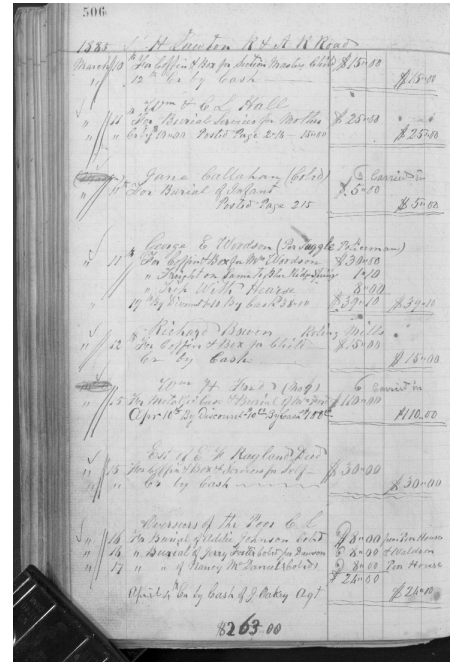 506
1885 H Lawton R & A R Road
March 13 For Coffin & Box for Section Master Child $15=00
" 12th Cr by Cash $15=00
Wm & C L Hall
" 11 For Burial Services for Mother $25=00
" " Cr By 10=00 Posted Page 216 - 15=00 $25=00
Jane Callahan (Cold) Carried in
" 11 For Burial of Infant $5=00
Posted Page 215 $5=00
George E Woodson (Per Tuggle Policeman)
" 11 For Coffin & Box for Mrs Woodson $30=00
" Freight on Same to Blue Ridge Springs 1=10
" Trip With Hearse 8=00
" 19th By Discount 1=00 By Cash 38=10 $39=10 $39=10
Richard Brown Mills
" 12 For Coffin & Box for Child $15=00
Cr by Cash $15=00
Wm H (No 9) Carried in
" 15 For Metallic Case & Burial of Mr $110=00
Apr 10th By Discount 10=00 By Cash 100= $110.00
Est of E F Ragland Decd
" 15 For Coffin & Box & Services for Self $30=00
" " Cr by Cash $30=00
Overseers of the Poor C L
" 16 To Burial of Eddie Johnson Cold $8=00 House
" 16 " Burial of Jerry Cold for Dawson 8=00
" 17 " " of Nancy McDaniel Cold 8=00 House
$24=00
April Cr by Cash of J Oakey Agt $24=00
$263=00